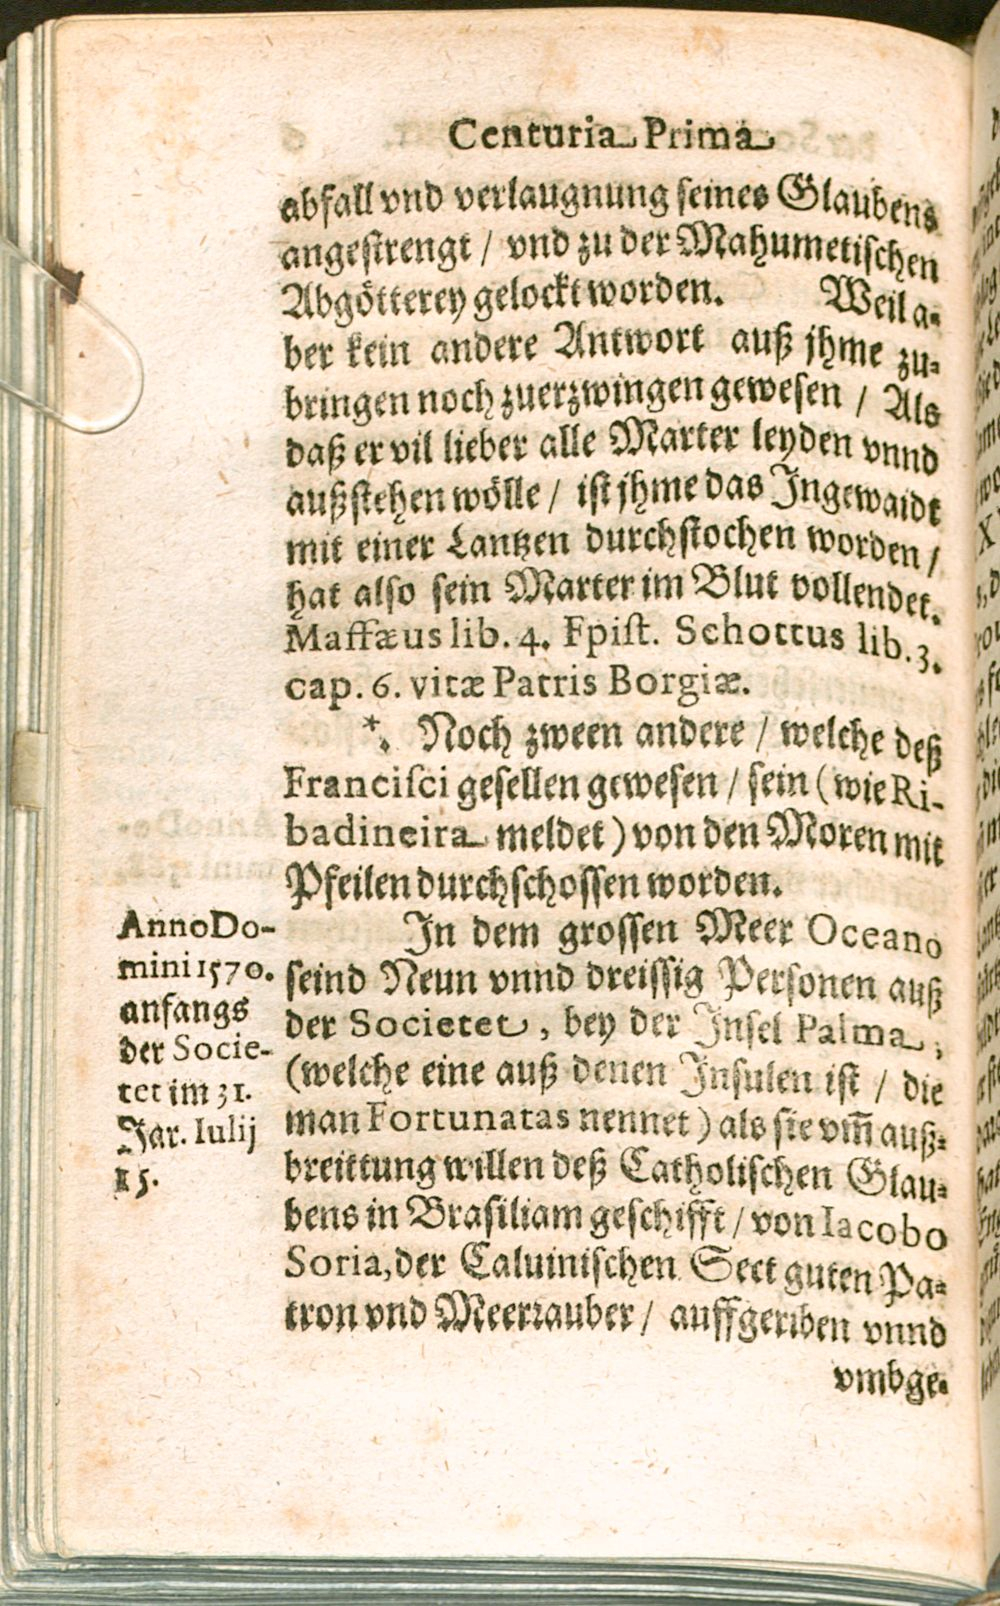 Centuria Prima
abfall vnd verlaugnung seines Glaubens
angestrengt / vnd zu der Mahumetischen
Abgötterey gelockt worden. Weil a-
ber kein andere Antwort auß jhme zu-
bringen noch zuerzwingen gewesen / Als
daß er vil lieber alle Marter leyden vnnd
außstehen wölle / ist jhme das Ingewaidt
mit einer Lantzen durchstochen worden /
hat also sein Marter im Blut vollendet.
Maffæus lib. 4. Fpist. Schottus lib. 3.
cap. 6. vitæ Patris Borgiæ.
*. Noch zween andere / welche deß
Francisci gesellen gewesen / sein (wie Ri-
badineira meldet) von den Moren mit
Pfeilen durchschossen worden.
Anno Do-
mini 1570.
anfangs
der Socie-
tet im 31.
Jar. Iulij
15.
In dem grossen Meer Oceano
seind Neun vnnd dreissig Personen auß
der Societet, bey der Insel Palma,
(welche eine auß denen Insulen ist / die
man Fortunatas nennet) als sie vm̃ auß-
breittung willen deß Catholischen Glau-
bens in Brasiliam geschifft / von Iacobo
Soria, der Caluinischen Sect guten Pa-
tron vnd Meerrauber / auffgeriben vnnd
vmbge-